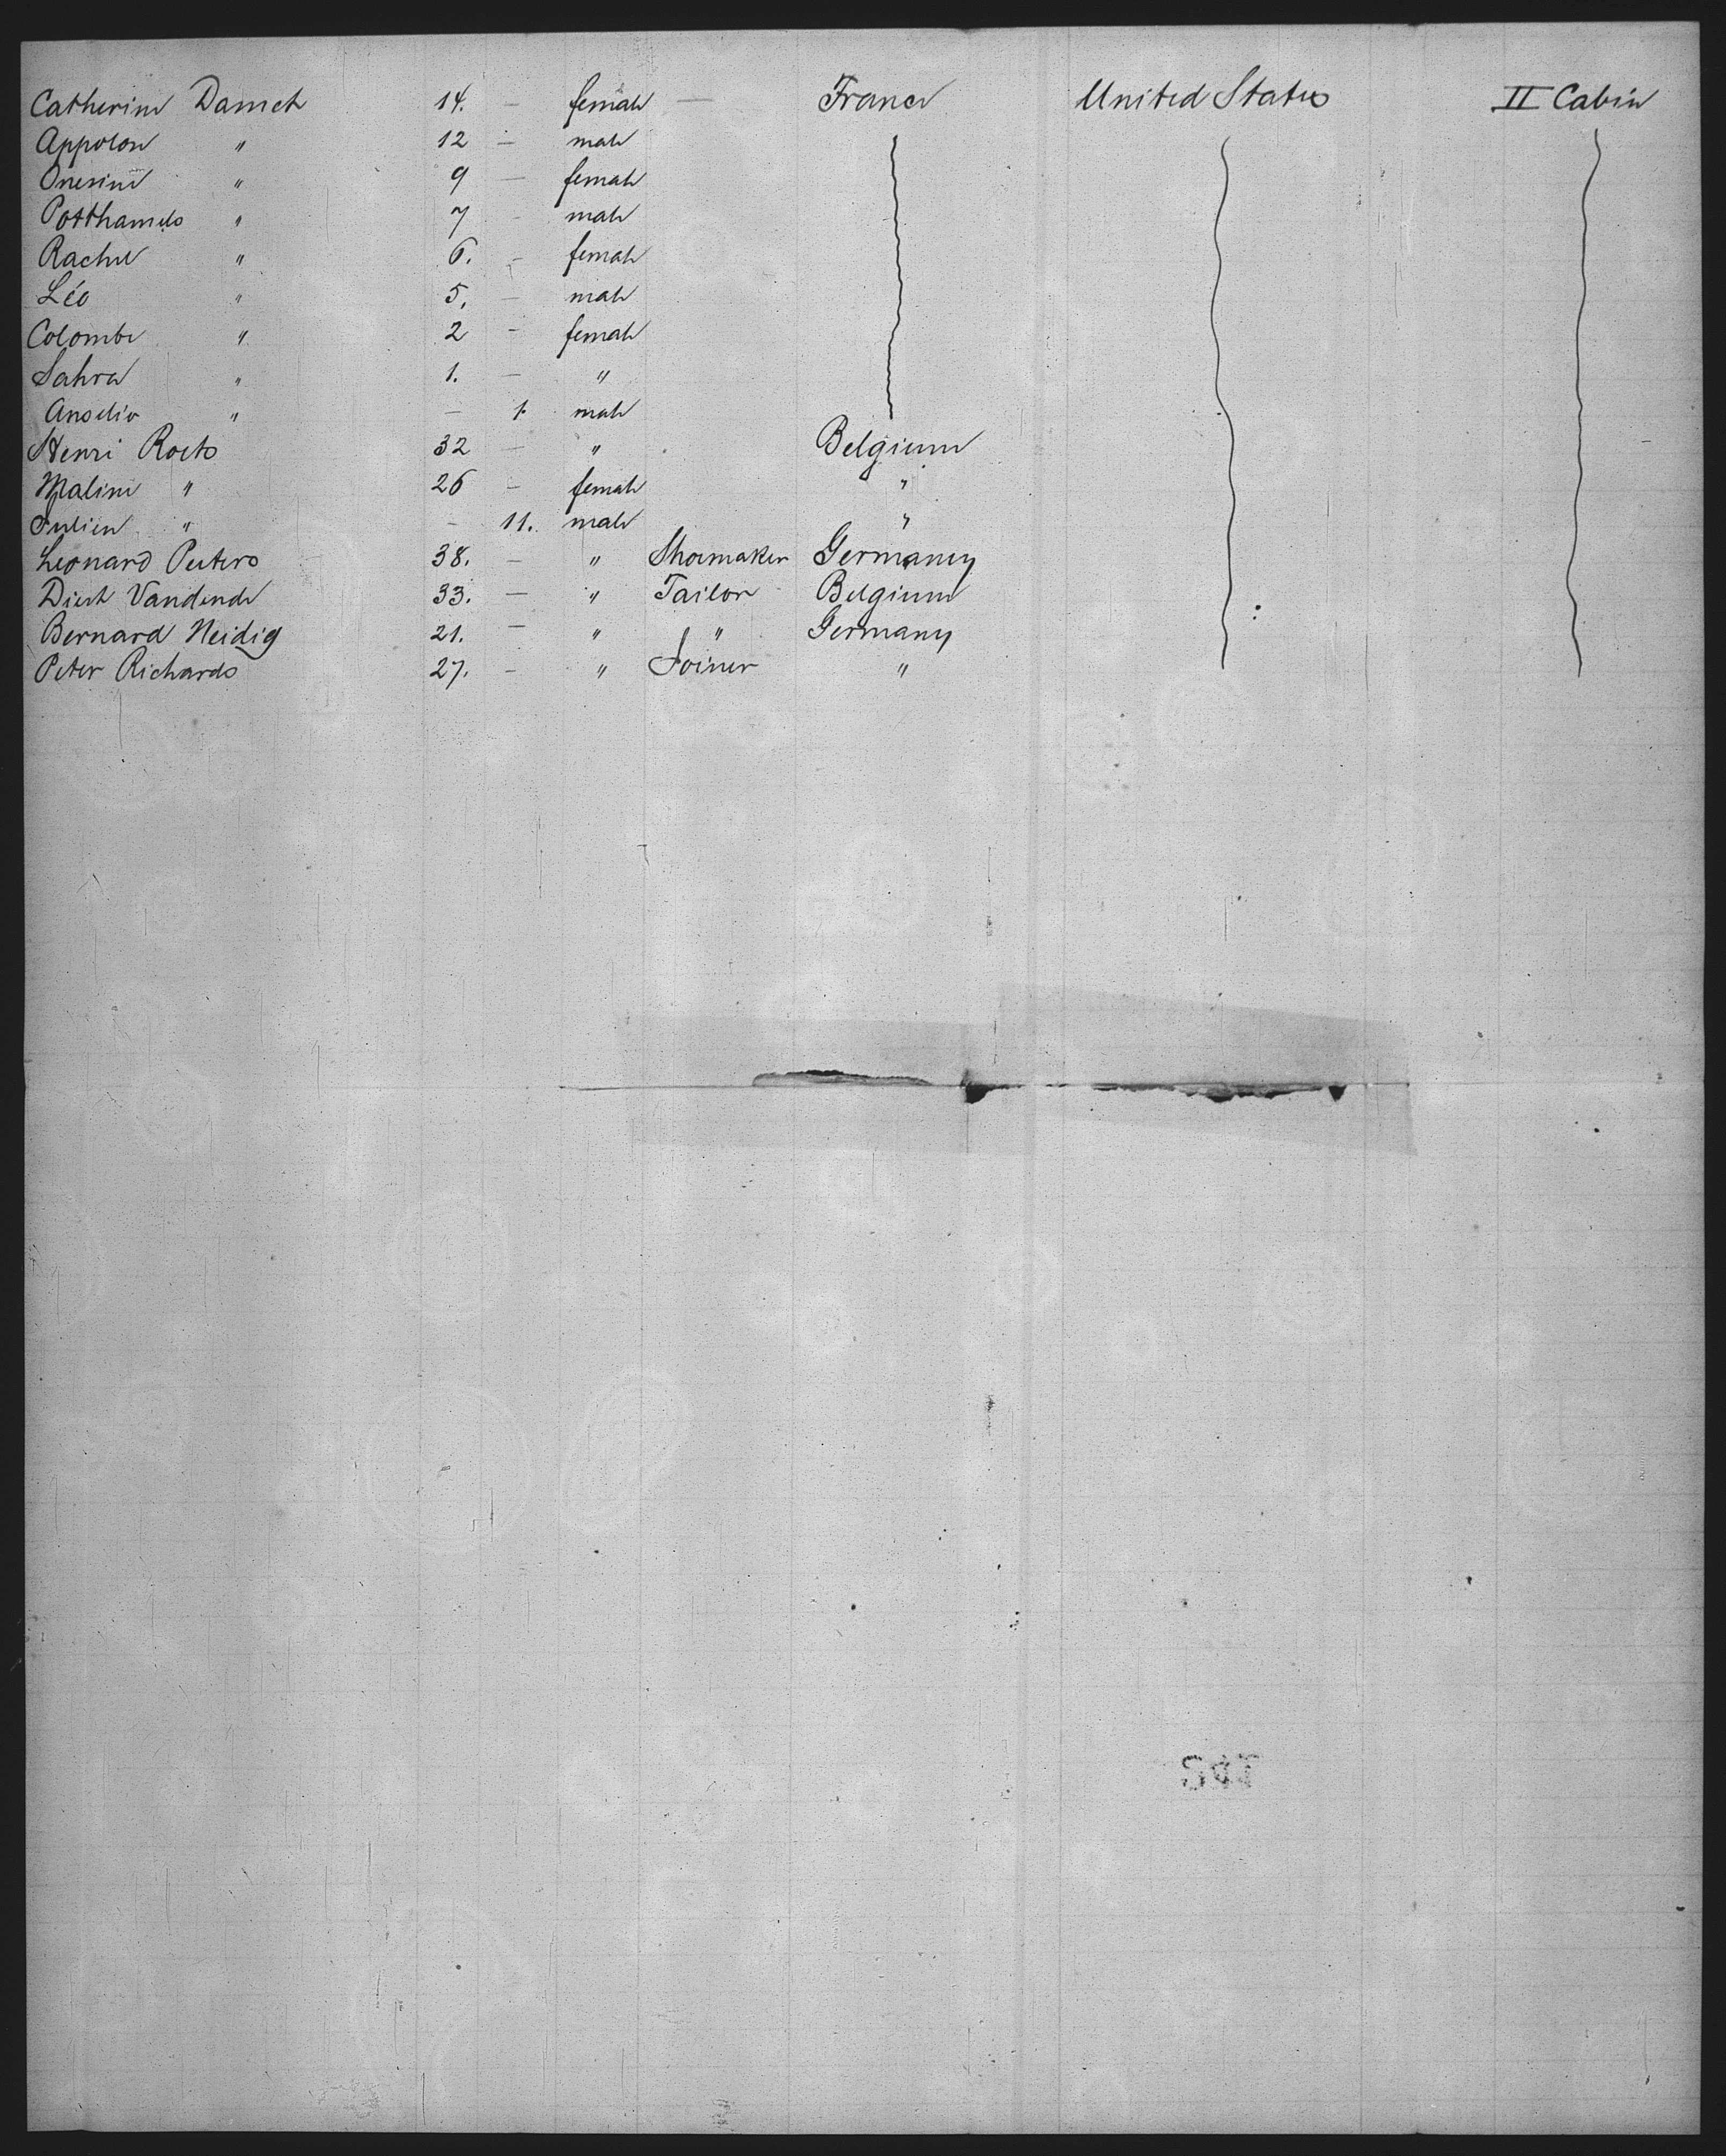 Catherine Damet 14. — female — France United States II Cabin
Appolon " 12 — male
Onesine " 9 — female
Potthamels " 7 — male
Rachel " 6. — female
Léo " 5. — male
Colombe " 2 — female
Sahra " 1. — "
Anselio " — 1. male
Henri Roets 32 — " Belgium
Maline " 26 — female "
Julien " — 11. male "
Leonard Peeters 38. — " Shoemaker Germany
Vandende 33. — " Tailor Belgium
Bernard Neidig 21. — " " Germany
Peter Richards 27. — " Joiner "